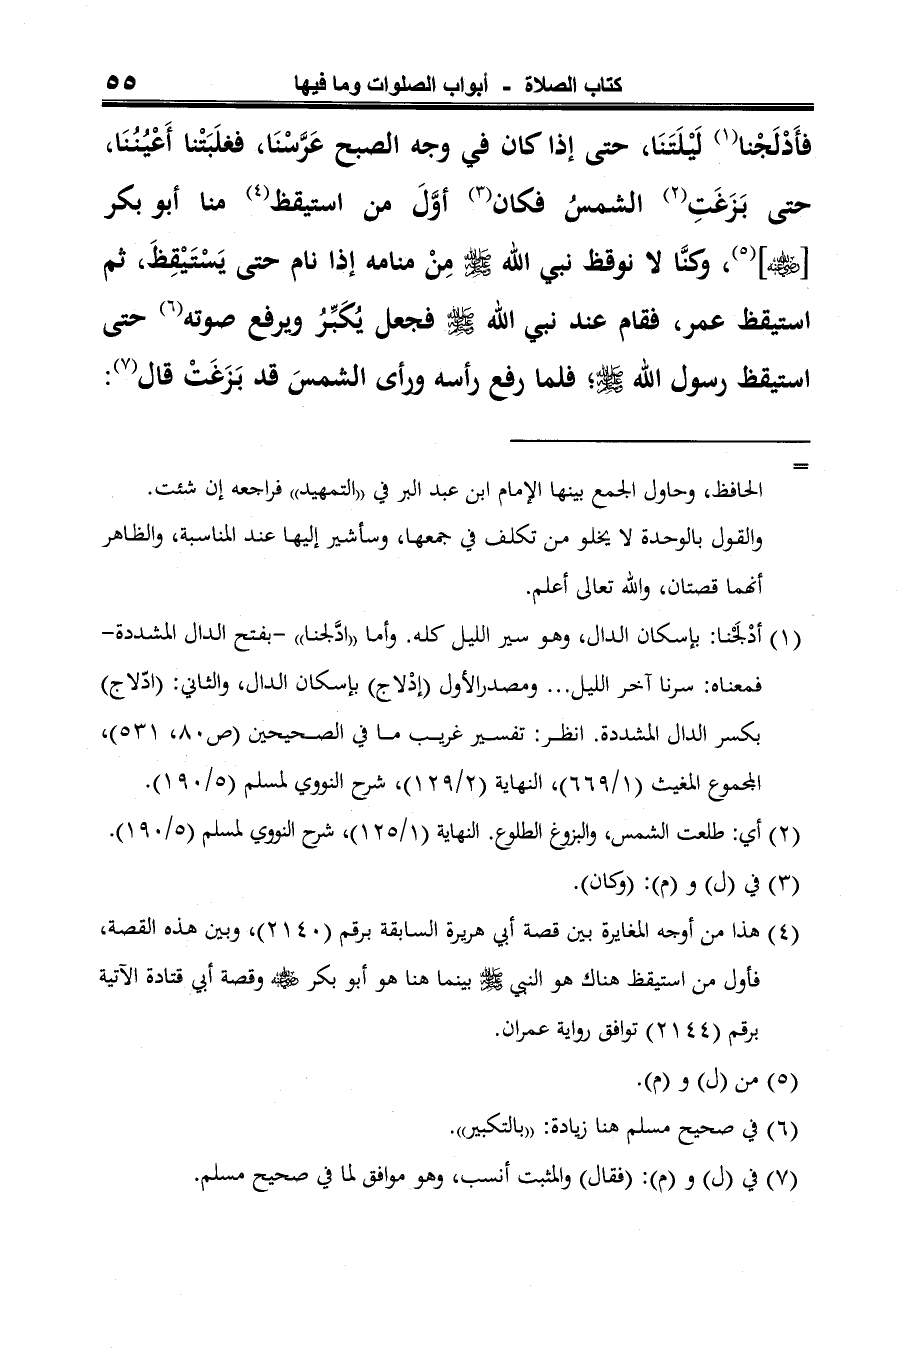 كتاب الصلاة - أبواب الصلوات وما فيها ٥٥
فأَدْلَجْنا(١) لَيْلَتَنَا، حتى إذا كان في وجه الصبح عَرَّسْنَا، فغلَبَتْنا أَعْيُنُنَا،
حتى بَزَغَتِ(٢) الشمسُ فكان(٣) أوَّلَ من استيقظ(٤) منا أبو بكر
[رضي الله عنه](٥)، وكنَّا لا نوقظ نبي الله ﷺ مِنْ منامه إذا نام حتى يَسْتَيْقِظَ، ثم
استيقظ عمر، فقام عند نبي الله ﷺ فجعل يُكَبِّرُ ويرفع صوته(٦) حتى
استيقظ رسول الله ﷺ؛ فلما رفع رأسه ورأى الشمسَ قد بَزَغَتْ قال(٧):
=
الحافظ، وحاول الجمع بينها الإمام ابن عبد البر في ((التمهيد)) فراجعه إن شئت.
والقول بالوحدة لا يخلو من تكلف في جمعها، وسأشير إليها عند المناسبة، والظاهر
أنهما قصتان، والله تعالى أعلم.
(١) أدْلَجْنا: بإسكان الدال، وهو سير الليل كله. وأما ((ادَّلجنا)) -بفتح الدال المشددة-
فمعناه: سرنا آخر الليل... ومصدرالأول (إدْلاج) بإسكان الدال، والثاني: (ادّلاج)
بكسر الدال المشددة. انظر: تفسير غريب ما في الصحيحين (ص٨٠، ٥٣١)،
المجموع المغيث (٦٦٩/١)، النهاية (١٢٩/٢)، شرح النووي لمسلم (١٩٠/٥).
(٢) أي: طلعت الشمس، والبزوغ الطلوع. النهاية (١٢٥/١)، شرح النووي لمسلم (١٩٠/٥).
(٣) في (ل) و (م): (وكان).
(٤) هذا من أوجه المغايرة بين قصة أبي هريرة السابقة برقم (٢١٤٠)، وبين هذه القصة،
فأول من استيقظ هناك هو النبي ﷺ بينما هنا هو أبو بكر رضي الله عنه وقصة أبي قتادة الآتية
برقم (٢١٤٤) توافق رواية عمران.
(٥) من (ل) و (م).
(٦) في صحيح مسلم هنا زيادة: ((بالتكبير)).
(٧) في (ل) و (م): (فقال) والمثبت أنسب، وهو موافق لما في صحيح مسلم.